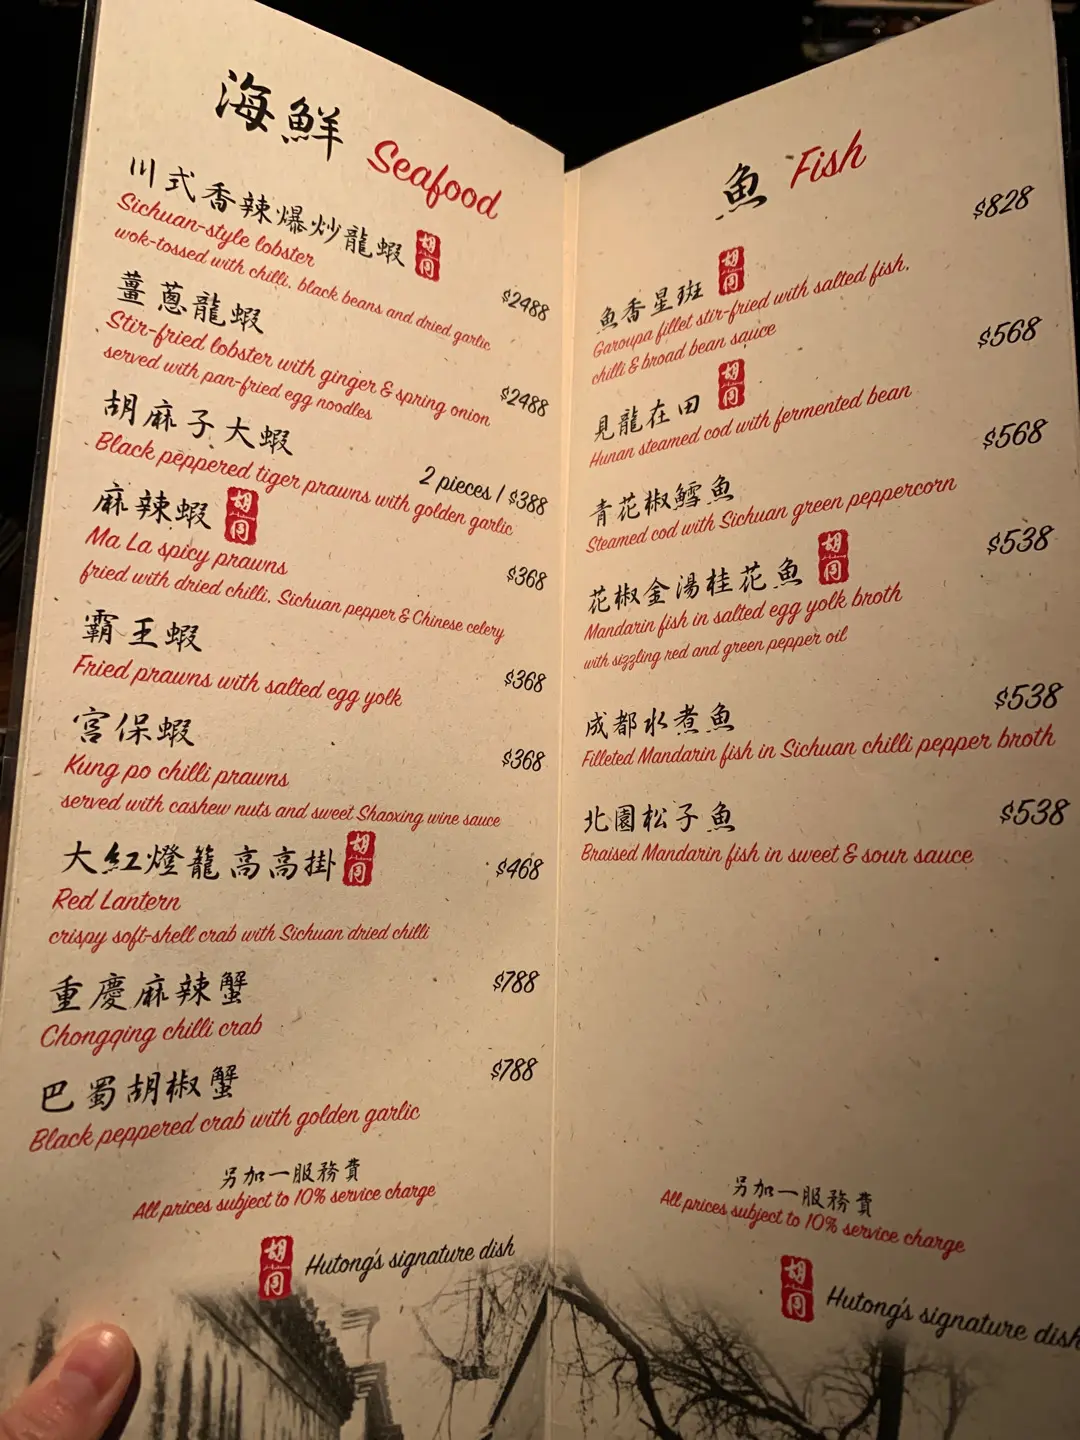 海鮮 Seafood
川式香辣爆炒龍蝦 胡同
Sichuan-style lobster
wok-tossed with chilli, black beans and dried garlic
$2488
薑蔥龍蝦
Stir-fried lobster with ginger & spring onion
served with pan-fried egg noodles
$2488
胡麻子大蝦
2 pieces / $388
Black peppered tiger prawns with golden garlic
麻辣蝦 胡同
Ma La spicy prawns
$368
fried with dried chilli, Sichuan pepper & Chinese celery
霸王蝦
Fried prawns with salted egg yolk
$368
宮保蝦
$368
Kung po chilli prawns
served with cashew nuts and sweet Shaoxing wine sauce
大紅燈籠高高掛 胡同
$468
Red Lantern
crispy soft-shell crab with Sichuan dried chilli
重慶麻辣蟹
$788
Chongqing chilli crab
巴蜀胡椒蟹
$788
Black peppered crab with golden garlic
另加一服務費
All prices subject to 10% service charge
胡同 Hutong's signature dish
魚 Fish
$828
魚香星斑 胡同
Garoupa fillet stir-fried with salted fish,
chilli & broad bean sauce
$568
見龍在田 胡同
Hunan steamed cod with fermented bean
$568
青花椒鱈魚
Steamed cod with Sichuan green peppercorn
$538
花椒金湯桂花魚 胡同
Mandarin fish in salted egg yolk broth
with sizzling red and green pepper oil
$538
成都水煮魚
Filleted Mandarin fish in Sichuan chilli pepper broth
北園松子魚
$538
Braised Mandarin fish in sweet & sour sauce
另加一服務費
All prices subject to 10% service charge
胡同 Hutong's signature dish